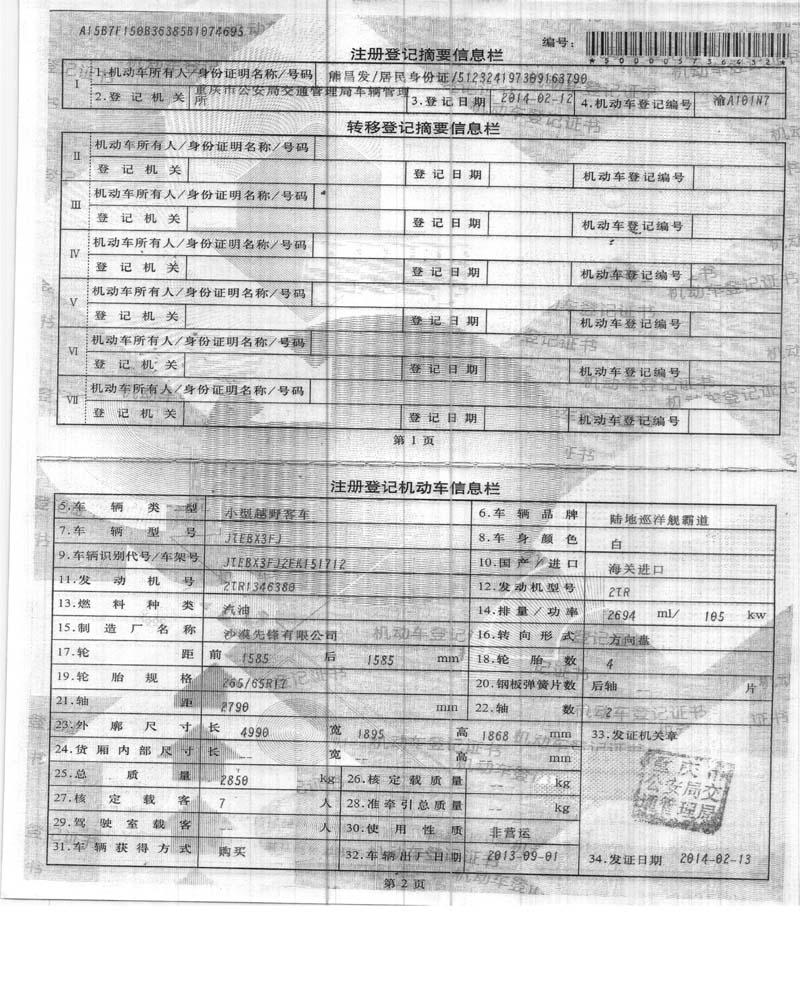 A15B7F150B36385B1074695
编号：
*500005736432*
注册登记摘要信息栏
Ⅰ 1.机动车所有人/身份证明名称/号码 熊昌发/居民身份证/512324197309163790
2.登记机关 重庆市公安局交通管理局车辆管理所 3.登记日期 2014-02-12 4.机动车登记编号 渝A101N7
转移登记摘要信息栏
Ⅱ 机动车所有人/身份证明名称/号码
登记机关 登记日期 机动车登记编号
Ⅲ 机动车所有人/身份证明名称/号码
登记机关 登记日期 机动车登记编号
Ⅳ 机动车所有人/身份证明名称/号码
登记机关 登记日期 机动车登记编号
Ⅴ 机动车所有人/身份证明名称/号码
登记机关 登记日期 机动车登记编号
Ⅵ 机动车所有人/身份证明名称/号码
登记机关 登记日期 机动车登记编号
Ⅶ 机动车所有人/身份证明名称/号码
登记机关 登记日期 机动车登记编号
第1页
注册登记机动车信息栏
5.车辆类型 小型越野客车 6.车辆品牌 陆地巡洋舰霸道
7.车辆型号 JTEBX3FJ 8.车身颜色 白
9.车辆识别代号/车架号 JTEBX3FJ2EK151712 10.国产/进口 海关进口
11.发动机号 2TR1346380 12.发动机型号 2TR
13.燃料种类 汽油 14.排量/功率 2694 ml/ 105 kw
15.制造厂名称 沙漠先锋有限公司 16.转向形式 方向盘
17.轮距 前 1585 后 1585 mm 18.轮胎数 4
19.轮胎规格 265/65R17 20.钢板弹簧片数 后轴 -- 片
21.轴距 2790 mm 22.轴数 2
23.外廓尺寸 长 4990 宽 1895 高 1868 mm 33.发证机关章
24.货厢内部尺寸 长 -- 宽 -- 高 -- mm
25.总质量 2850 kg 26.核定载质量 -- kg
27.核定载客 7 人 28.准牵引总质量 -- kg
29.驾驶室载客 -- 人 30.使用性质 非营运
31.车辆获得方式 购买 32.车辆出厂日期 2013-09-01 34.发证日期 2014-02-13
重庆市
公安局交
通管理局
第2页